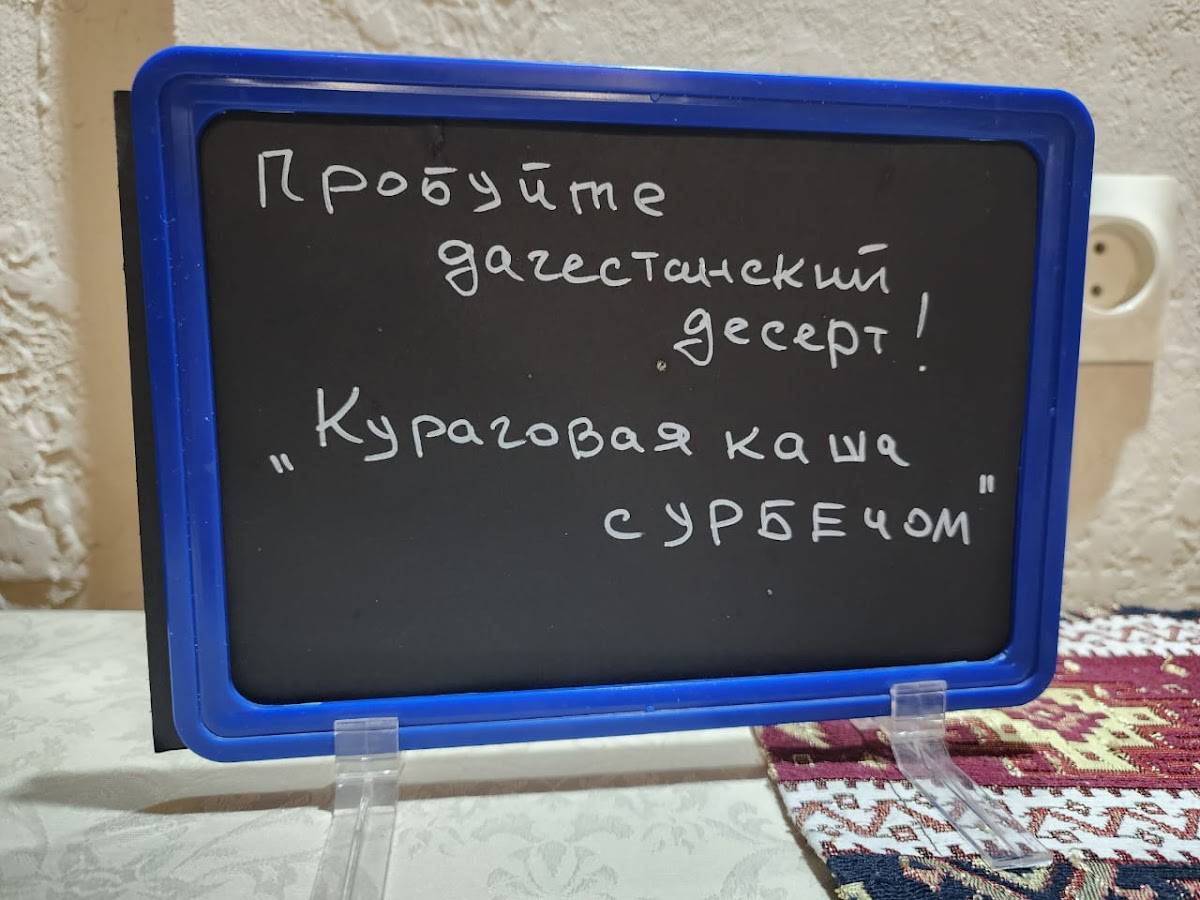 Пробуйте
дагестанский
десерт!
„Кураговая каша
с УРБЕЧОМ"